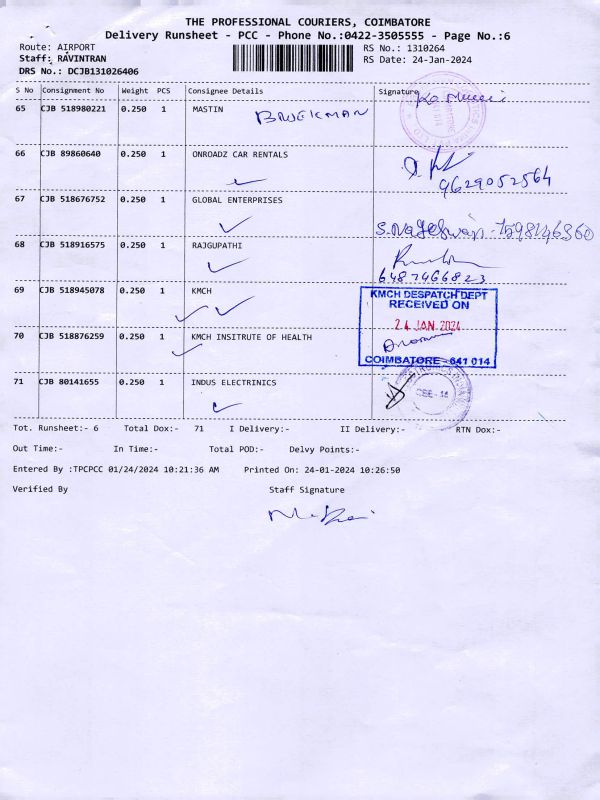 THE PROFESSIONAL COURIERS, COIMBATORE
Delivery Runsheet - PCC - Phone No.:0422-3505555 - Page No.:6
Route: AIRPORT
RS No.: 1310264
Staff: RAVINTRAN
RS Date: 24-Jan-2024
DRS No.: DCJB131026406
S No Consignment No Weight PCS Consignee Details Signature
65 CJB 518980221 0.250 1 MASTIN
66 CJB 89860640 0.250 1 ONROADZ CAR RENTALS
9629052564
67 CJB 518676752 0.250 1 GLOBAL ENTERPRISES
68 CJB 518916575 0.250 1 RAJGUPATHI
6487466823
69 CJB 518945078 0.250 1 KMCH
KMCH DESPATCH DEPT
RECEIVED ON
24 JAN 2024
COIMBATORE - 641 014
70 CJB 518876259 0.250 1 KMCH INSITRUTE OF HEALTH
71 CJB 80141655 0.250 1 INDUS ELECTRINICS
Tot. Runsheet:- 6 Total Dox:- 71 I Delivery:- II Delivery:- RTN Dox:-
Out Time:- In Time:- Total POD:- Delvy Points:-
Entered By :TPCPCC 01/24/2024 10:21:36 AM Printed On: 24-01-2024 10:26:50
Verified By Staff Signature